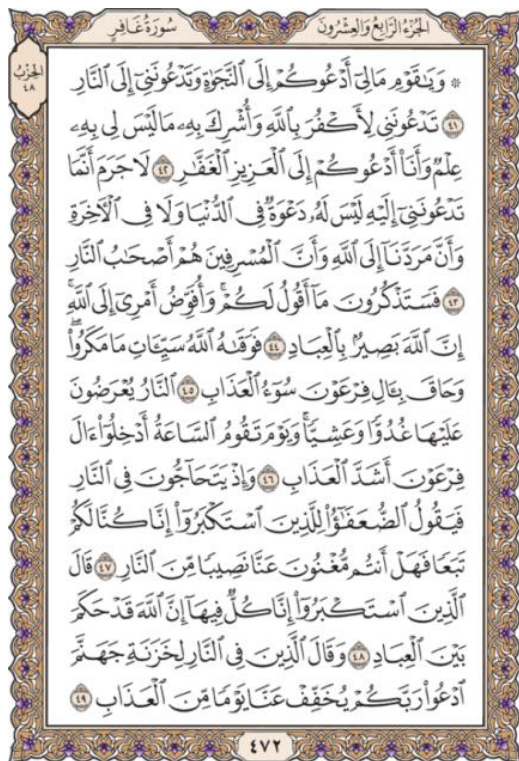 الجُزْءُ الرَّابِعُ وَالعِشْرُونَ
سُورَةُ غَافِرٍ
الحِزْبُ
٤٨
۞ وَيَٰقَوْمِ مَالِيٓ أَدْعُوكُمْ إِلَى ٱلنَّجَوٰةِ وَتَدْعُونَنِيٓ إِلَى ٱلنَّارِ
٤١ تَدْعُونَنِي لِأَكْفُرَ بِٱللَّهِ وَأُشْرِكَ بِهِۦ مَا لَيْسَ لِي بِهِۦ
عِلْمٌ وَأَنَا۠ أَدْعُوكُمْ إِلَى ٱلْعَزِيزِ ٱلْغَفَّٰرِ ٤٢ لَا جَرَمَ أَنَّمَا
تَدْعُونَنِيٓ إِلَيْهِ لَيْسَ لَهُۥ دَعْوَةٌ فِي ٱلدُّنْيَا وَلَا فِي ٱلْأٓخِرَةِ
وَأَنَّ مَرَدَّنَآ إِلَى ٱللَّهِ وَأَنَّ ٱلْمُسْرِفِينَ هُمْ أَصْحَٰبُ ٱلنَّارِ
٤٣ فَسَتَذْكُرُونَ مَآ أَقُولُ لَكُمْ ۚ وَأُفَوِّضُ أَمْرِيٓ إِلَى ٱللَّهِ ۚ
إِنَّ ٱللَّهَ بَصِيرٌۢ بِٱلْعِبَادِ ٤٤ فَوَقَىٰهُ ٱللَّهُ سَيِّـَٔاتِ مَا مَكَرُوا۟ ۖ
وَحَاقَ بِـَٔالِ فِرْعَوْنَ سُوٓءُ ٱلْعَذَابِ ٤٥ ٱلنَّارُ يُعْرَضُونَ
عَلَيْهَا غُدُوًّا وَعَشِيًّا ۖ وَيَوْمَ تَقُومُ ٱلسَّاعَةُ أَدْخِلُوٓا۟ ءَالَ
فِرْعَوْنَ أَشَدَّ ٱلْعَذَابِ ٤٦ وَإِذْ يَتَحَآجُّونَ فِي ٱلنَّارِ
فَيَقُولُ ٱلضُّعَفَٰٓؤُا۟ لِلَّذِينَ ٱسْتَكْبَرُوٓا۟ إِنَّا كُنَّا لَكُمْ
تَبَعًا فَهَلْ أَنتُم مُّغْنُونَ عَنَّا نَصِيبًا مِّنَ ٱلنَّارِ ٤٧ قَالَ
ٱلَّذِينَ ٱسْتَكْبَرُوٓا۟ إِنَّا كُلٌّ فِيهَآ إِنَّ ٱللَّهَ قَدْ حَكَمَ
بَيْنَ ٱلْعِبَادِ ٤٨ وَقَالَ ٱلَّذِينَ فِي ٱلنَّارِ لِخَزَنَةِ جَهَنَّمَ
ٱدْعُوا۟ رَبَّكُمْ يُخَفِّفْ عَنَّا يَوْمًا مِّنَ ٱلْعَذَابِ ٤٩
٤٧٢